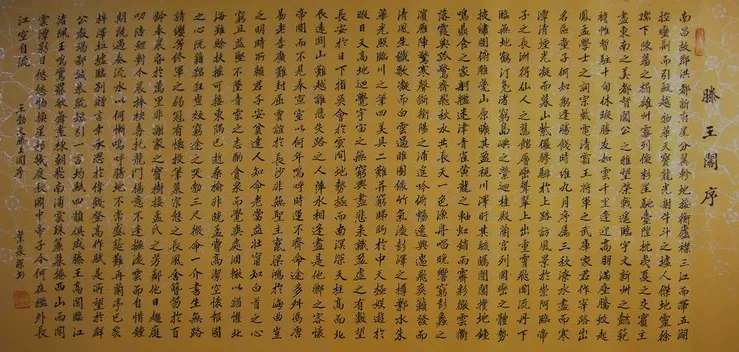 滕王閣序
南昌故郡洪都新府星分翼軫地接衡廬襟三江而帶五湖
控蠻荊而引甌越物華天寶龍光射牛斗之墟人傑地靈徐
孺下陳蕃之榻雄州霧列俊彩星馳臺隍枕夷夏之交賓主
盡東南之美都督閻公之雅望棨戟遙臨宇文新州之懿範
襜帷暫駐十旬休暇勝友如雲千里逢迎高朋滿座騰蛟起
鳳孟學士之詞宗紫電清霜王將軍之武庫家君作宰路出
名區童子何知躬逢勝餞時維九月序屬三秋潦水盡而寒
潭清煙光凝而暮山紫儼驂騑於上路訪風景於崇阿臨帝
子之長洲得仙人之舊館層巒聳翠上出重霄飛閣流丹下
臨無地鶴汀鳧渚窮島嶼之縈迴桂殿蘭宮列岡巒之體勢
披繡闥俯雕甍山原曠其盈視川澤盱其駭矚閭閻撲地鐘
鳴鼎食之家舸艦迷津青雀黃龍之舳虹銷雨霽彩徹雲衢
落霞與孤鶩齊飛秋水共長天一色漁舟唱晚響窮彭蠡之
濱雁陣驚寒聲斷衡陽之浦遙吟俯暢逸興遄飛爽籟發而
清風生纖歌凝而白雲遏睢園綠竹氣凌彭澤之樽鄴水朱
華光照臨川之筆四美具二難并窮睇眄於中天極娛遊於
暇日天高地迥覺宇宙之無窮興盡悲來識盈虛之有數望
長安於日下指吳會於雲間地勢極而南溟深天柱高而北
辰遠關山難越誰悲失路之人萍水相逢盡是他鄉之客懷
帝閽而不見奉宣室以何年嗚呼時運不齊命途多舛馮唐
易老李廣難封屈賈誼於長沙非無聖主竄梁鴻於海曲豈
乏明時所賴君子安貧達人知命老當益壯寧知白首之心
窮且益堅不墜青雲之志酌貪泉而覺爽處涸轍以猶懽北
海雖賒扶搖可接東隅已逝桑榆非晚孟嘗高潔空懷報國
之心阮籍猖狂豈效窮途之哭勃三尺微命一介書生無路
請纓等終軍之弱冠有懷投筆慕宗慤之長風舍簪笏於百
齡奉晨昏於萬里非謝家之寶樹接孟氏之芳鄰他日趨庭
叨陪鯉對今晨捧袂喜托龍門楊意不逢撫凌雲而自惜鍾
期既遇奏流水以何慚嗚呼勝地不常盛筵難再蘭亭已矣
梓澤丘墟臨別贈言幸承恩於偉餞登高作賦是所望於群
公敢竭鄙誠恭疏短引一言均賦四韻俱成滕王高閣臨江
渚佩玉鳴鸞罷歌舞畫棟朝飛南浦雲珠簾暮捲西山雨閒
雲潭影日悠悠物換星移幾度秋閣中帝子今何在檻外長
江空自流 王勃文滕王閣序